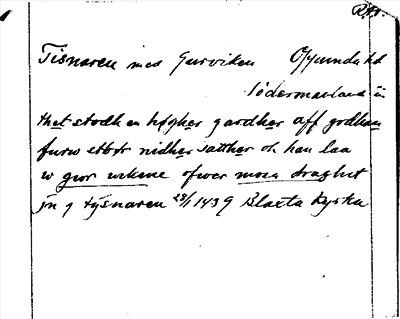 RAP.
Tisnaren med Gurviken Oppunda hd
Södermanland
thet stodh en høgher gardher aff godhan
furw nidher satther oh han laa
w gør wikene ofwer moza draghit
jn j tysnaren 23/1 1439 Blaxta kyrka